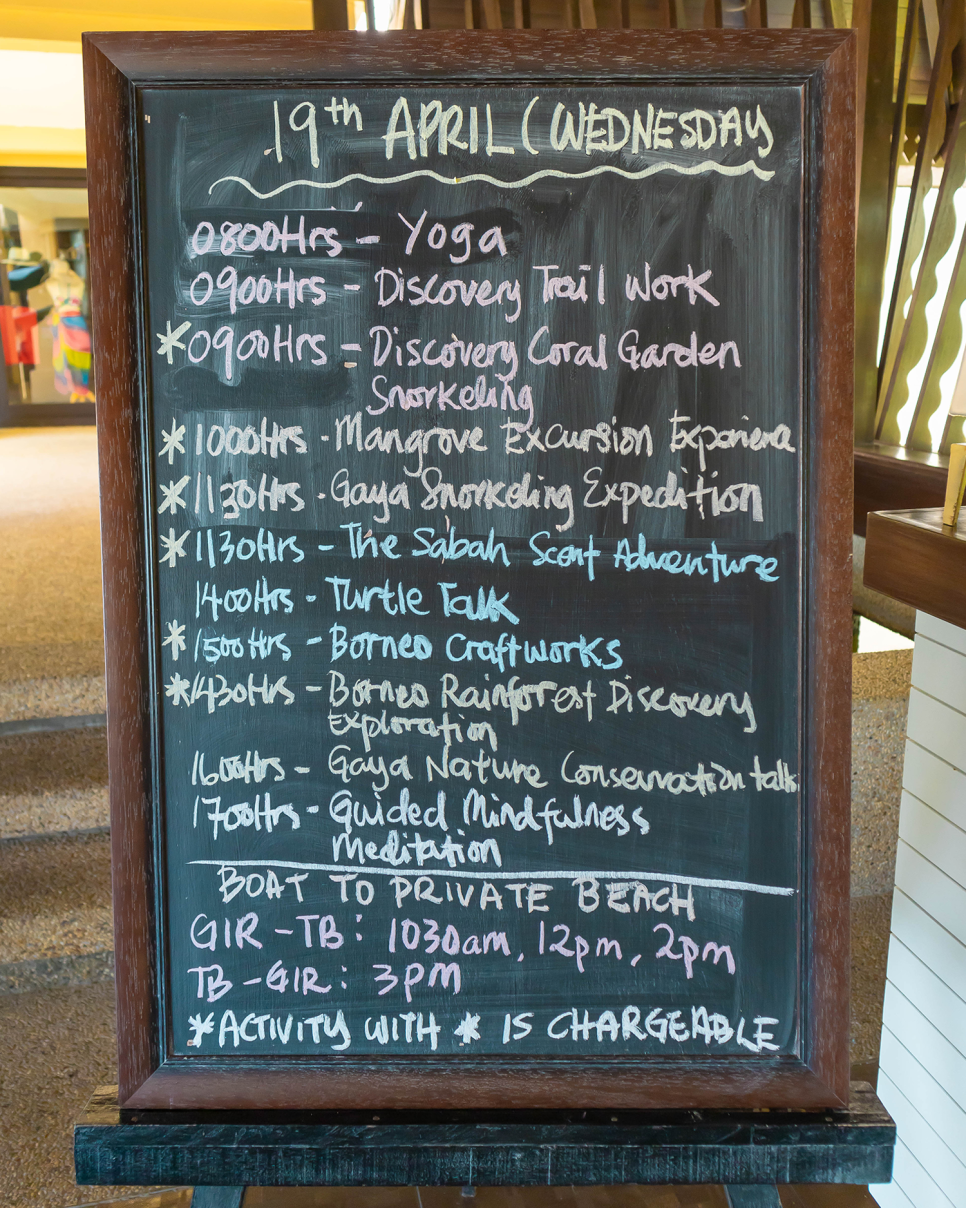 19th APRIL (WEDNESDAY
0800Hrs - Yoga
0900Hrs - Discovery Trail Work
*0900Hrs - Discovery Coral Garden
Snorkeling
*1000Hrs - Mangrove Excursion
*1130Hrs - Gaya Snorkeling Expedition
*1130Hrs - The Sabah Scent Adventure
1400Hrs - Turtle Talk
*1500Hrs - Borneo Craftworks
*1430Hrs - Borneo Rainforest Discovery
Exploration
1600Hrs - Gaya Nature Conservation talk
1700Hrs - Guided Mindfulness
Meditation
BOAT TO PRIVATE BEACH
GIR - TB: 1030am, 12pm, 2pm
TB - GIR: 3PM
*ACTIVITY WITH * IS CHARGEABLE